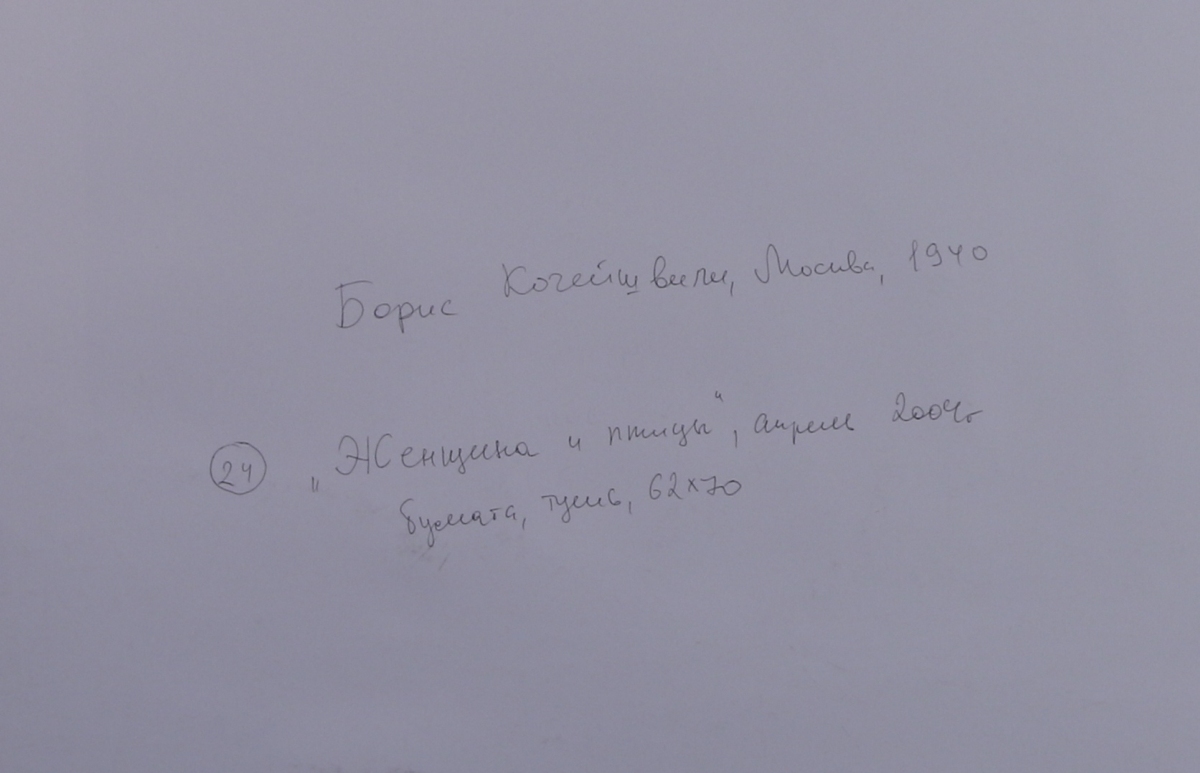 Борис Кочейшвили, Москва, 1940
24 „Женщина и птицы“, апрель 2004г
бумага, тушь, 62×70